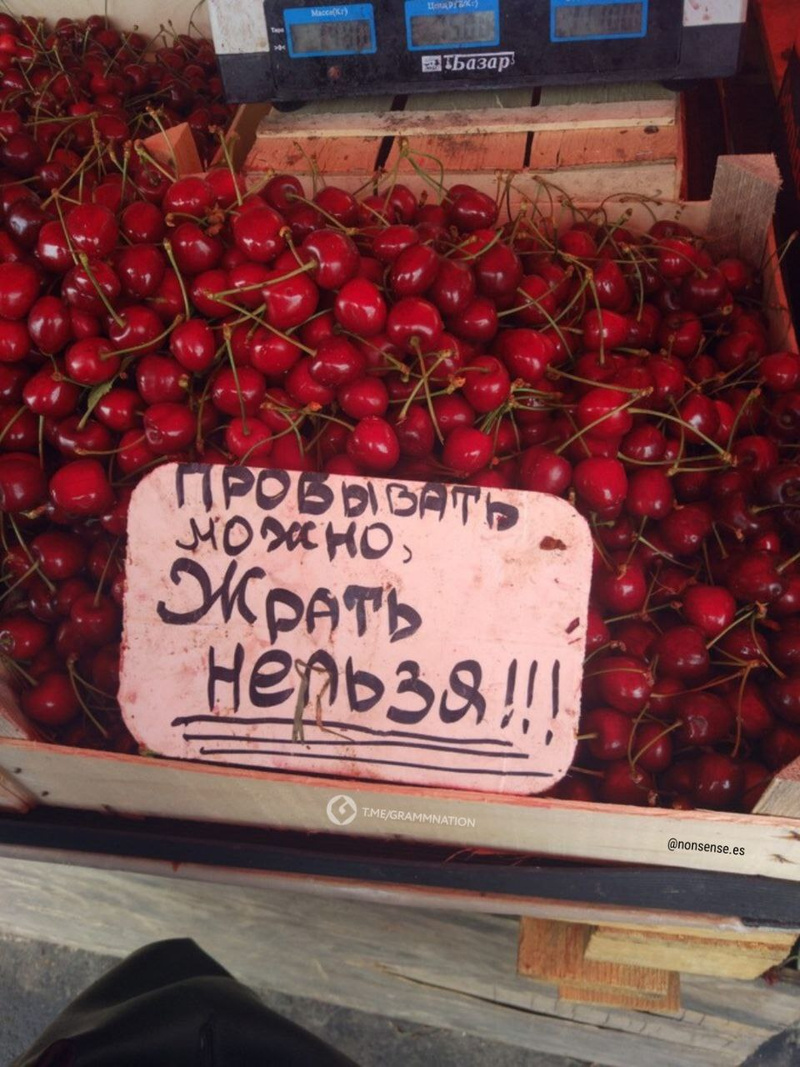 Масса(Кг)
Тара
Базар
ПРОБЫВАТЬ
МОЖНО,
ЖРАТЬ
НЕЛЬЗЯ!!!
T.ME/GRAMMNATION
@nonsense.es